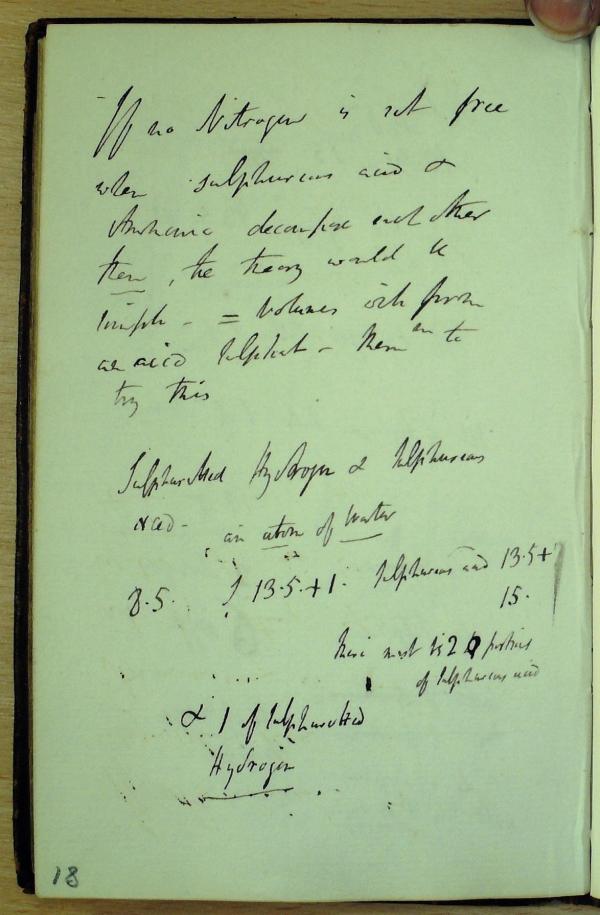 If no Nitrogen is set free
when sulphureous acid &
Ammonia decompose each other
then, the theory would be
simple - = Volumes
an acid Sulphat - Mem to
try this
Sulphuretted Hydrogen & Sulphureous
acid -
an atom of Water
8.5. 13.5.+1. Sulphureous acid 13.5+
15.
There must be 2 portions
of Sulphureous acid
& 1 of Sulphuretted
Hydrogen
18